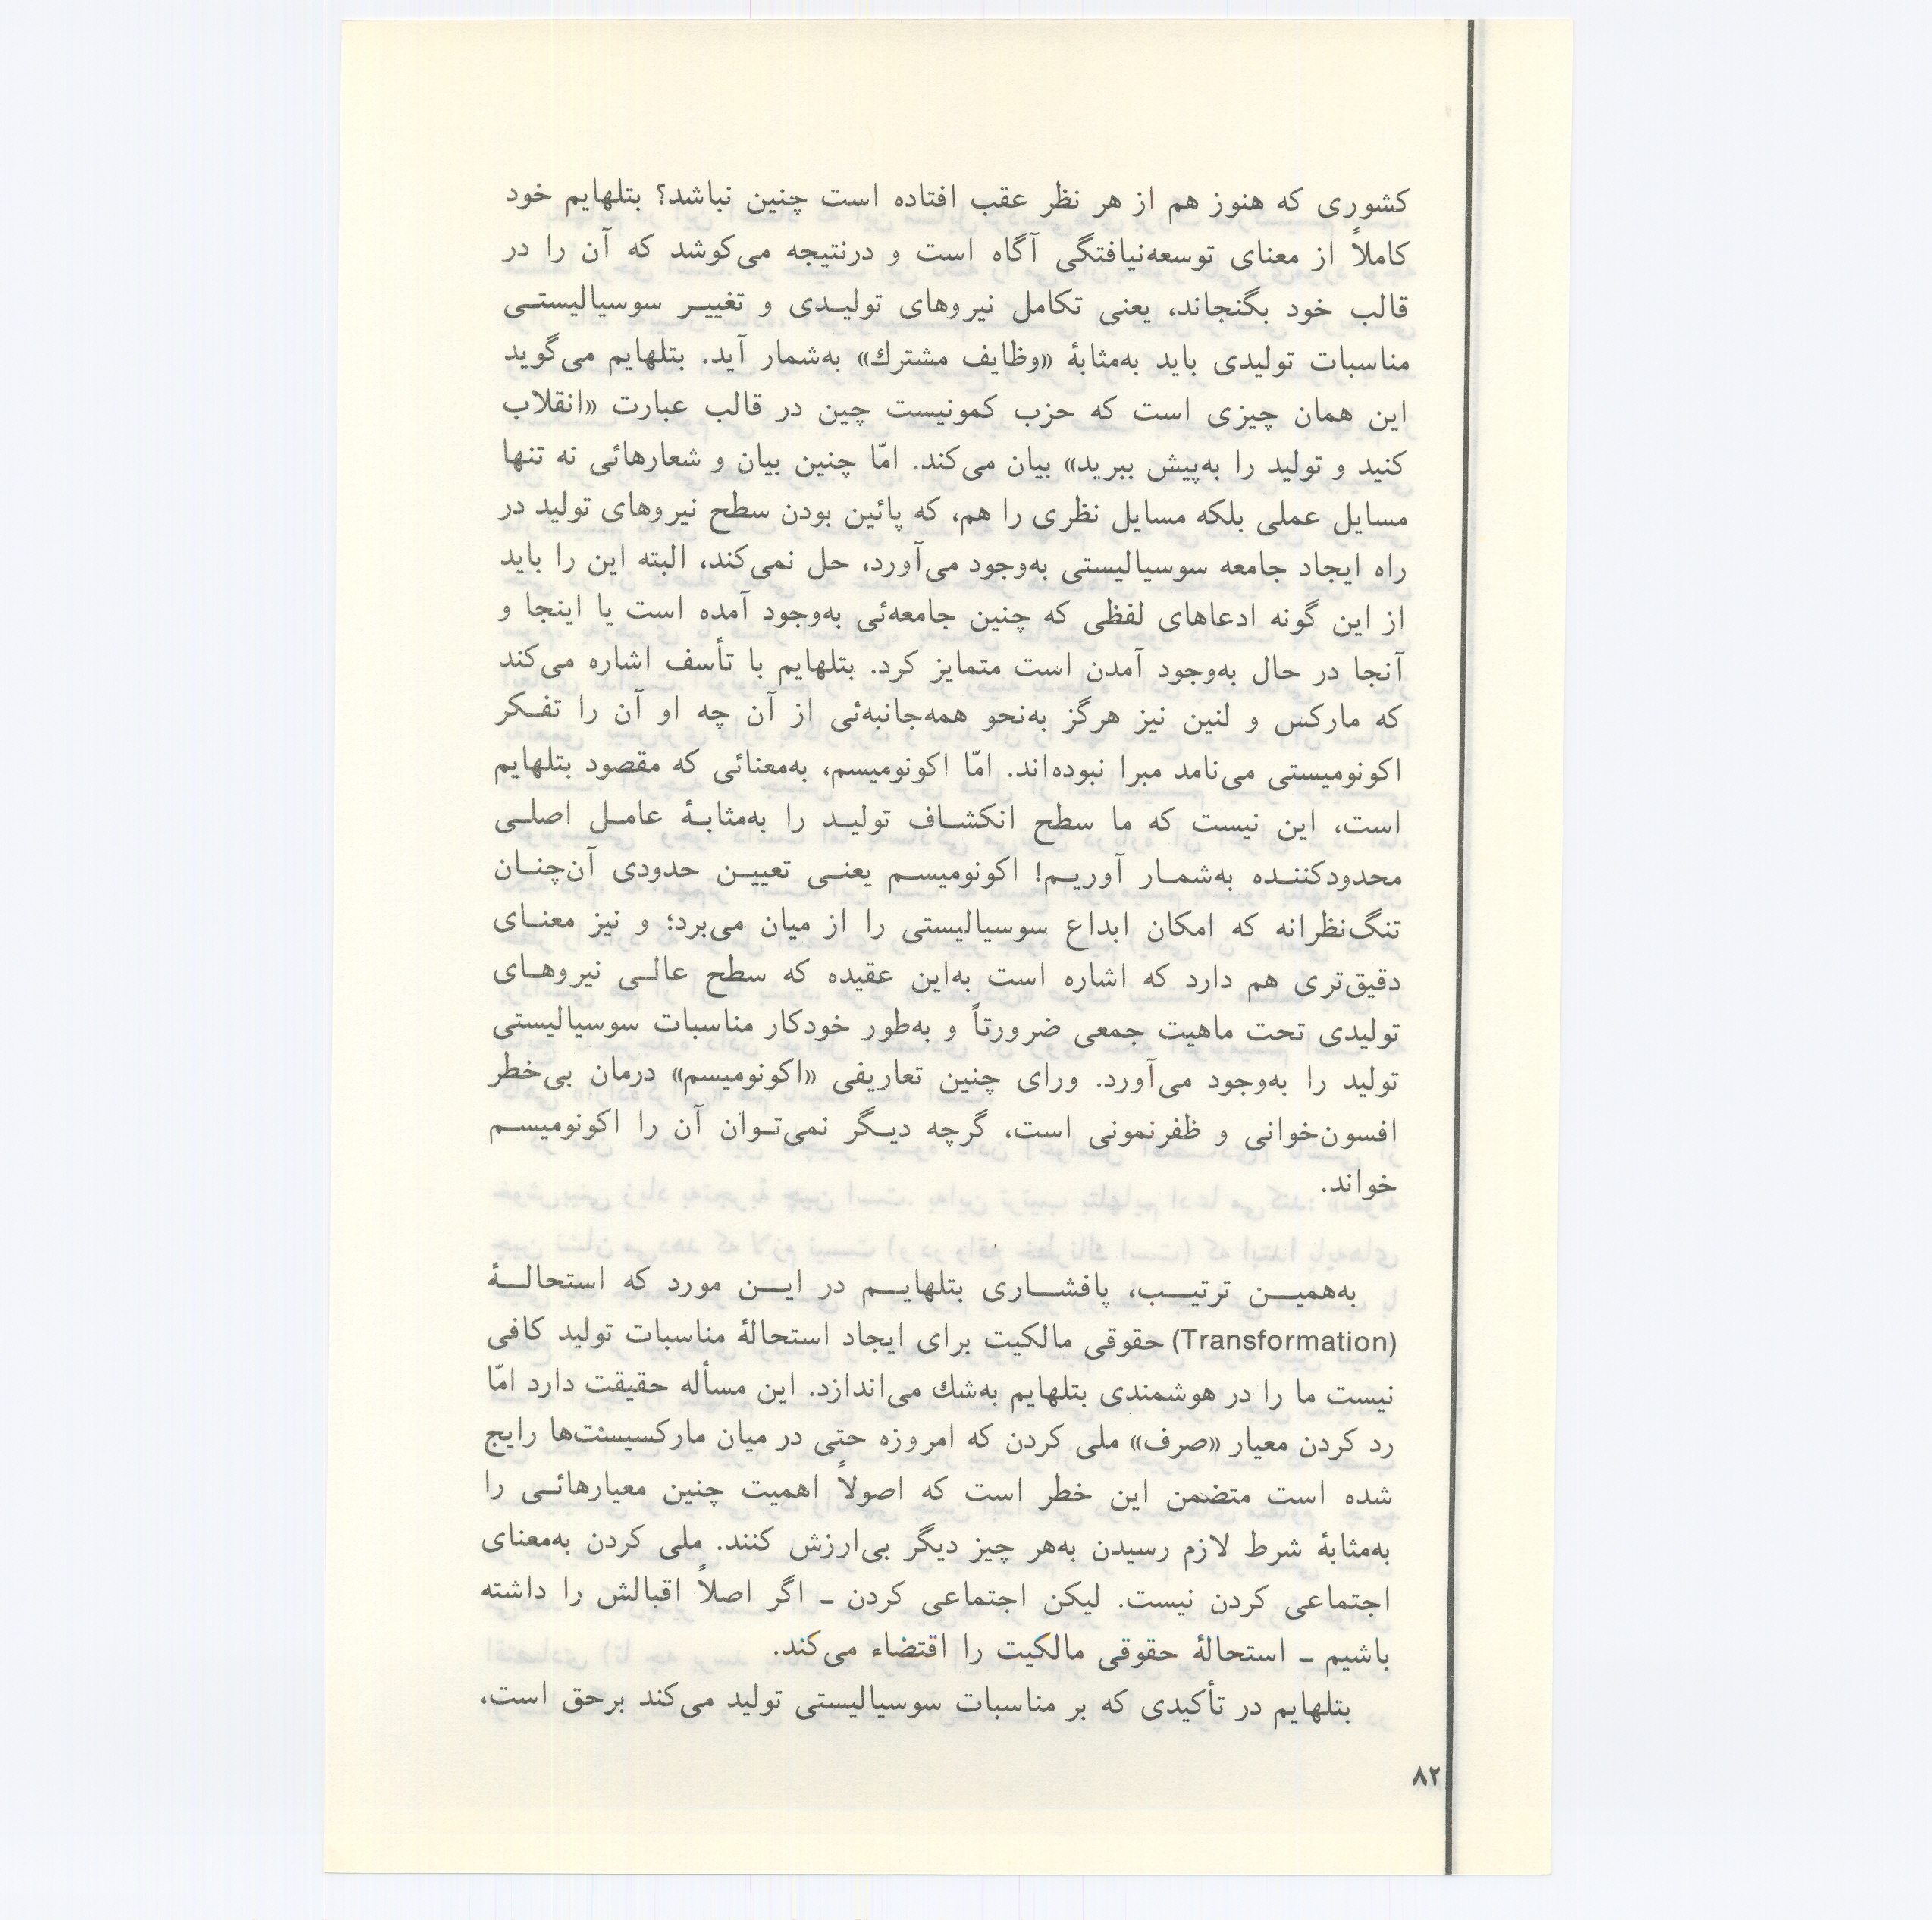 کشوری که هنوز هم از هر نظر عقب افتاده است چنین نباشد؟ بتلهایم خود
کاملاً از معنای توسعه‌نیافتگی آگاه است و درنتیجه می‌کوشد که آن را در
قالب خود بگنجاند، یعنی تکامل نیروهای تولیـدی و تغییـر سوسیالیستـی
مناسبات تولیدی باید به‌مثابهٔ «وظایف مشترك» به‌شمار آید. بتلهایم می‌گوید
این همان چیزی است که حزب کمونیست چین در قالب عبارت «انقلاب
کنید و تولید را به‌پیش ببرید» بیان می‌کند. امّا چنین بیان و شعارهائی نه تنها
مسایل عملی بلکه مسایل نظری را هم، که پائین بودن سطح نیروهای تولید در
راه ایجاد جامعه سوسیالیستی به‌وجود می‌آورد، حل نمی‌کند، البته این را باید
از این گونه ادعاهای لفظی که چنین جامعه‌ئی به‌وجود آمده است یا اینجا و
آنجا در حال به‌وجود آمدن است متمایز کرد. بتلهایم با تأسف اشاره می‌کند
که مارکس و لنین نیز هرگز به‌نحو همه‌جانبه‌ئی از آن چه او آن را تفـکر
اکونومیستی می‌نامد مبرا نبوده‌اند. امّا اکونومیسم، به‌معنائی که مقصود بتلهایم
است، این نیست که ما سطح انکشـاف تولیـد را به‌مثابـهٔ عامـل اصلـی
محدودکننـده به‌شمـار آوریـم! اکونومیسـم یعنـی تعییـن حدودی آن‌چنـان
تنگ‌نظرانه که امکان ابداع سوسیالیستی را از میان می‌برد؛ و نیز معنـای
دقیق‌تری هم دارد که اشاره است به‌این عقیده که سطح عالـی نیروهـای
تولیدی تحت ماهیت جمعی ضرورتاً و به‌طور خودکار مناسبات سوسیالیستی
تولید را به‌وجود می‌آورد. ورای چنین تعاریفی «اکونومیسم» درمان بی‌خطر
افسون‌خوانی و ظفرنمونی است، گرچه دیـگر نمی‌تـوان آن را اکونومیسـم
خواند.
به‌همیـــن ترتیـــب، پافشـــاری بتلهایـــم در ایـــن مورد که استحالـــهٔ
(Transformation) حقوقی مالکیت برای ایجاد استحالهٔ مناسبات تولید کافی
نیست ما را در هوشمندی بتلهایم به‌شك می‌اندازد. این مسأله حقیقت دارد امّا
رد کردن معیار «صرف» ملی کردن که امروزه حتی در میان مارکسیست‌ها رایج
شده است متضمن این خطر است که اصولاً اهمیت چنین معیارهائـی را
به‌مثابهٔ شرط لازم رسیدن به‌هر چیز دیگر بی‌ارزش کنند. ملی کردن به‌معنای
اجتماعی کردن نیست. لیکن اجتماعی کردن ـ اگر اصلاً اقبالش را داشته
باشیم ـ استحالهٔ حقوقی مالکیت را اقتضاء می‌کند.
بتلهایم در تأکیدی که بر مناسبات سوسیالیستی تولید می‌کند برحق است،
۸۲